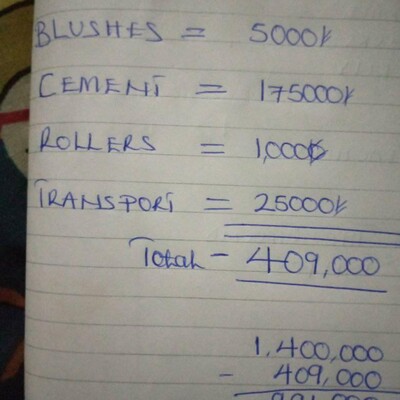 BLUSHES = 5000k
CEMENT = 175000k
ROLLERS = 1,000k
TRANSPORT = 25000k
Total - 409,000
1,400,000
- 409,000